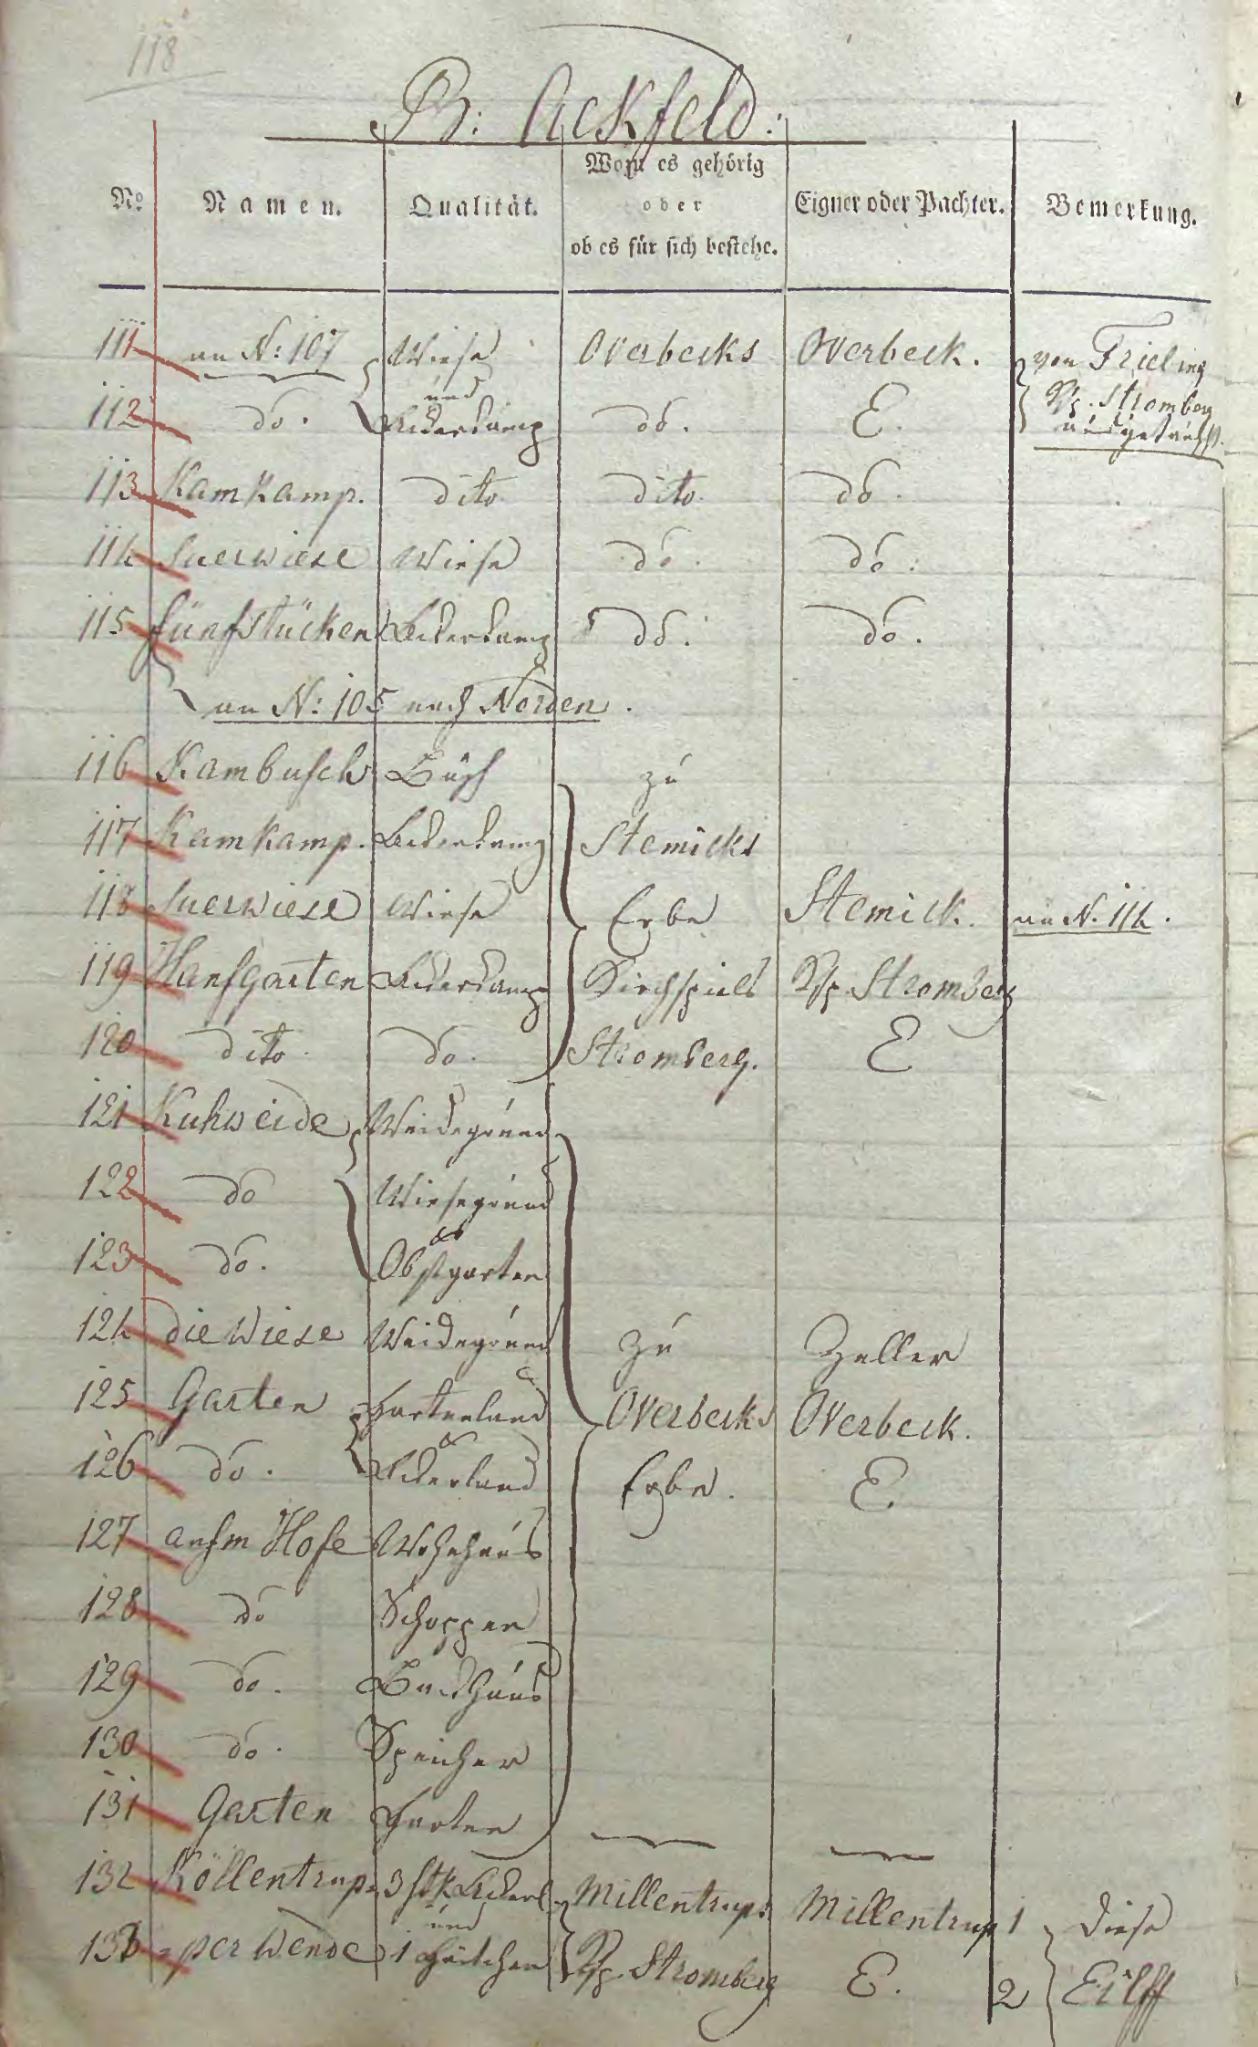 118
B: Ackfeld.
No. Namen. Qualität. Wozu es gehörig oder ob es für sich bestehe. Eigner oder Pachter. Bemerkung.
111 an N: 107 Wiese Overbecks Overbeck. von Frieling
und Ksp. Stromberg
112 do. Ackerkamp do. E.
113 Kamkamp. dito dito do.
114 Suerwiese Wiese do. do.
115 fünf Stücken Ackerkamp do. do.
an N: 105 nach Norden.
116 Kambusch Busch zu
117 Kamkamp. Ackerkamp Stemicks
118 Suerwiese Wiese Erbe Stemick. an N. 114.
119 Hanfgarten Ackerkamp Kirchspiels Ksp. Stromberg
120 dito do. Stromberg. E
121 Kuhweide Weidegrund
122 do Wiesegrund
&
123 do. Obstgarten
124 die Wiese Weidegrund zu Zeller
125 Garten Gartenland Overbecks Overbeck.
&
126 do. Ackerland Erbe. E.
127 aufm Hofe Wohnhaus
128 do Schoppen
129 do. Backhaus
130 do. Speicher
131 Garten Garten
132 Köllentrup 3 Stk. Ackerl. Millentrup Millentrup 1 diese
und
133 per Wende 1 Ksp. Stromberg E. 2 Eilff